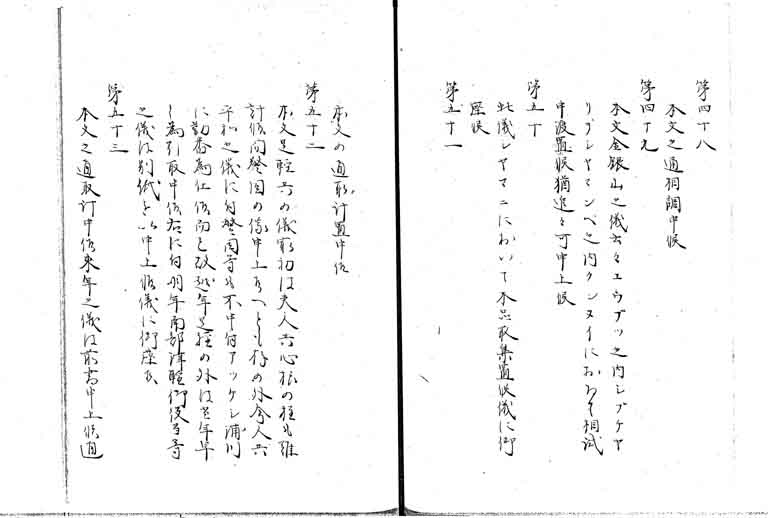 第四十八
本文之通相調申候
第四十九
本文金銀山之儀六ヶエウブツ之内シブケヤ
リブシヤマンベ之内クンヌイにおゐて相試
申渡置候猶追々可申上候
第五十
此儀シヤマニにおいて本品取集置候儀に御
座候
第五十一
本文の通取計置申候
第五十二
本文足軽共の儀最初は夫人共心根の程も難
計依而警固の儀申上候へとも存の外令人共
平和之儀に付警固等も不申付アツケシ浦川
に勤番為仕依而も放越年足軽の外は年早
為引取申候右に付明年南部津軽御役等
之儀は別紙を以申上候儀に御座候
第五十三
本文之通取計申候来年之儀は前書申上候通